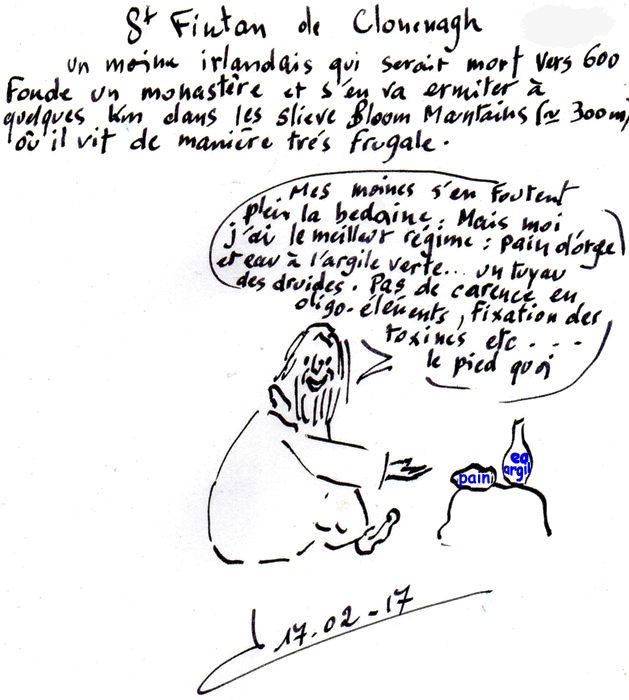 St Fintan de Clonenagh
un moine irlandais qui serait mort vers 600
Fonde un monastère et s'en va ermiter à
quelques km dans les slieve Bloom Mantains (≈ 300m)
où il vit de manière très frugale.
Mes moines s'en foutent
plein la bedaine. Mais moi
j'ai le meilleur régime : pain d'orge
et eau à l'argile verte... un tuyau
des druides. Pas de carence en
oligo-éléments, fixation des
toxines etc ....
le pied quoi
pain
ea
argil
17.02-17